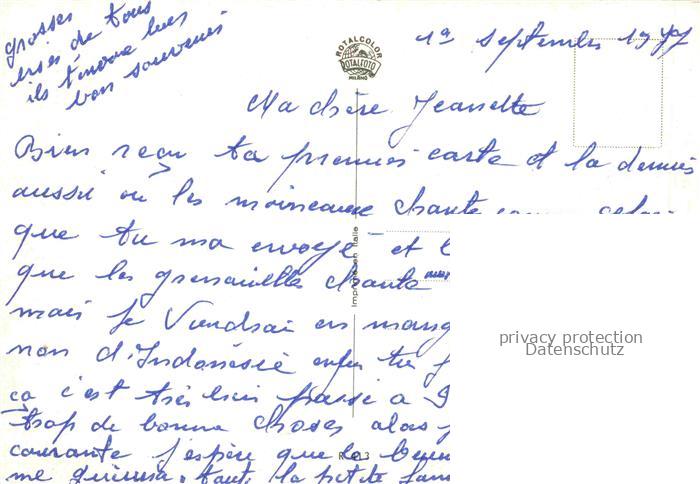 grosses
bises de tous
ils t'envoie leur
bon souvenir
ROTALCOLOR
ROTALFOTO
MILANO
1er septembre 19
Ma chère Jeannette
Bien reçu ta premier carte et la dernier
aussi où les moineaux chante comme celui
que tu ma envoyé et
que les grenouilles chante
mais je Voudrai en mang
non d'Indonésie enfin tu
ça c'est très bien passé a
trop de bonne choses alors
courante j'espère que le
me toute la petite fam
Imprimé en Italie
R 3
privacy protection
Datenschutz